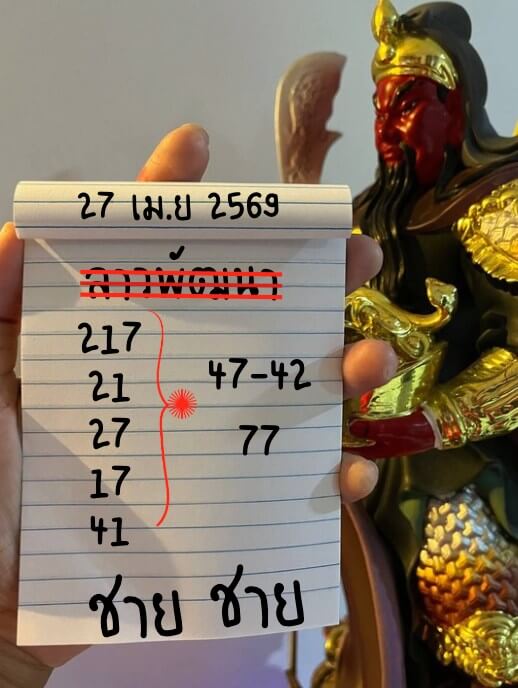 27 เม.ย 2569
ลาวพัฒนา
217
21
27
17
41
47-42
77
ชาย ชาย